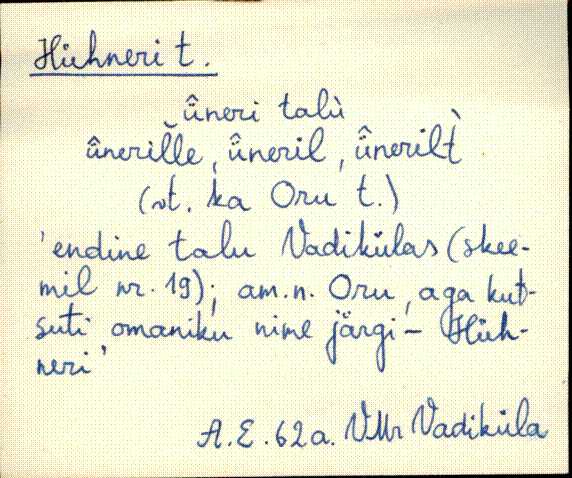 Hühneri t.
ǖ̂neri talù
ǖ̂neril̆le, ǖ̂neril, ǖ̂nerilt̀
(vt. ka Oru t.)
'endine talu Vadikülas (skee-
mil nr. 19); am.n. Oru, aga kut-
suti omaniku nime järgi - Hüh-
neri'
A.E. 62a. VMr Vadiküla